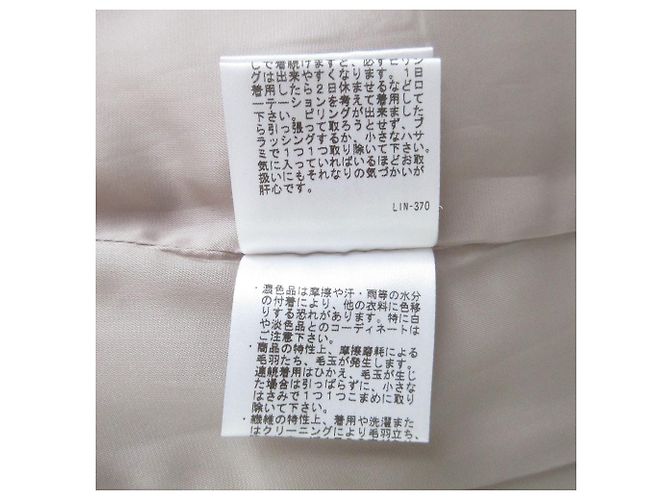 して着続けますと、必ずピリン
グは出来やすくなります。1日
着用したら2日休ませるなどロ
ーテーションを考えて着用して
下さい。ピリングが出来ました
ら引っ張って取ろうとせず、ブ
ラッシングするか、小さなハサ
ミで1つ1つ取り除いて下さい。
気に入っていればいるほどお取
扱いにもそれなりの気づかいが
肝心です。
LIN-370
・濃色品は摩擦や汗・雨等の水分
の付着により、他の衣料に色移
りする恐れがあります。特に白
や淡色品とのコーディネートは
ご注意下さい。
・商品の特性上、摩擦磨耗による
毛羽たち、毛玉が発生します。
連続着用はひかえ、毛玉が生じ
た場合は引っぱらずに、小さな
はさみで1つ1つこまめに取り
除いて下さい。
・繊維の特性上、着用や洗濯また
はクリーニングにより毛羽立ち、